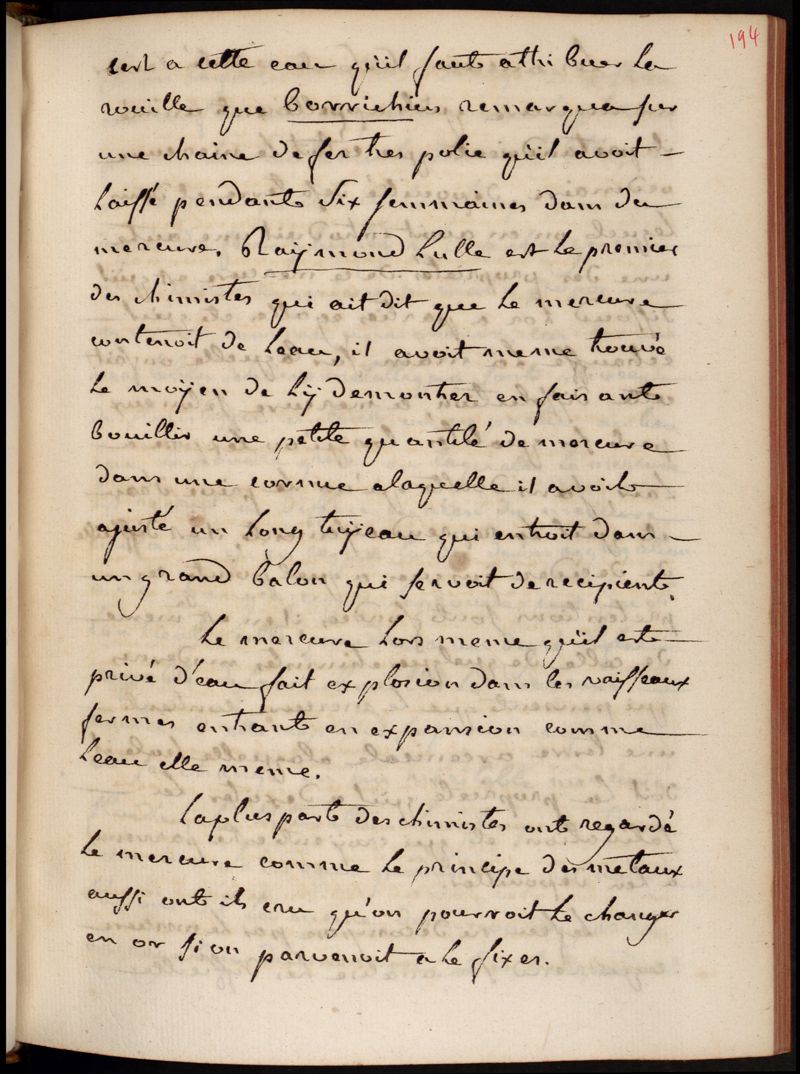 194
cest a cette eau qu'il faut attribuer la
rouille que borrichius remarqua sur
une chaine de fer tres polie qu'il avoit
laissé pendant six semmaines dans du
mercure. Raymond Lulle est le premier
des chimistes qui ait dit que le mercure
contenoit de leau, il avoit meme trouvé
le moyen de ly demontrer en faisant
bouillir une petite quantité de mercure
dans une cornue alaquelle il avoit
ajusté un long tuyeau qui entroit dans
un grand balon qui servoit de recipient.
Le mercure lors meme qu'il est
privé d'eau fait explosion dans les vaisseaux
fermes entrant en expansion comme
leau elle meme.
laplus part des chimistes ont regardé
le mercure comme le principe des metaux
aussi ont ils cru qu'on pourroit le changer
en or si on parvenoit a le fixer.